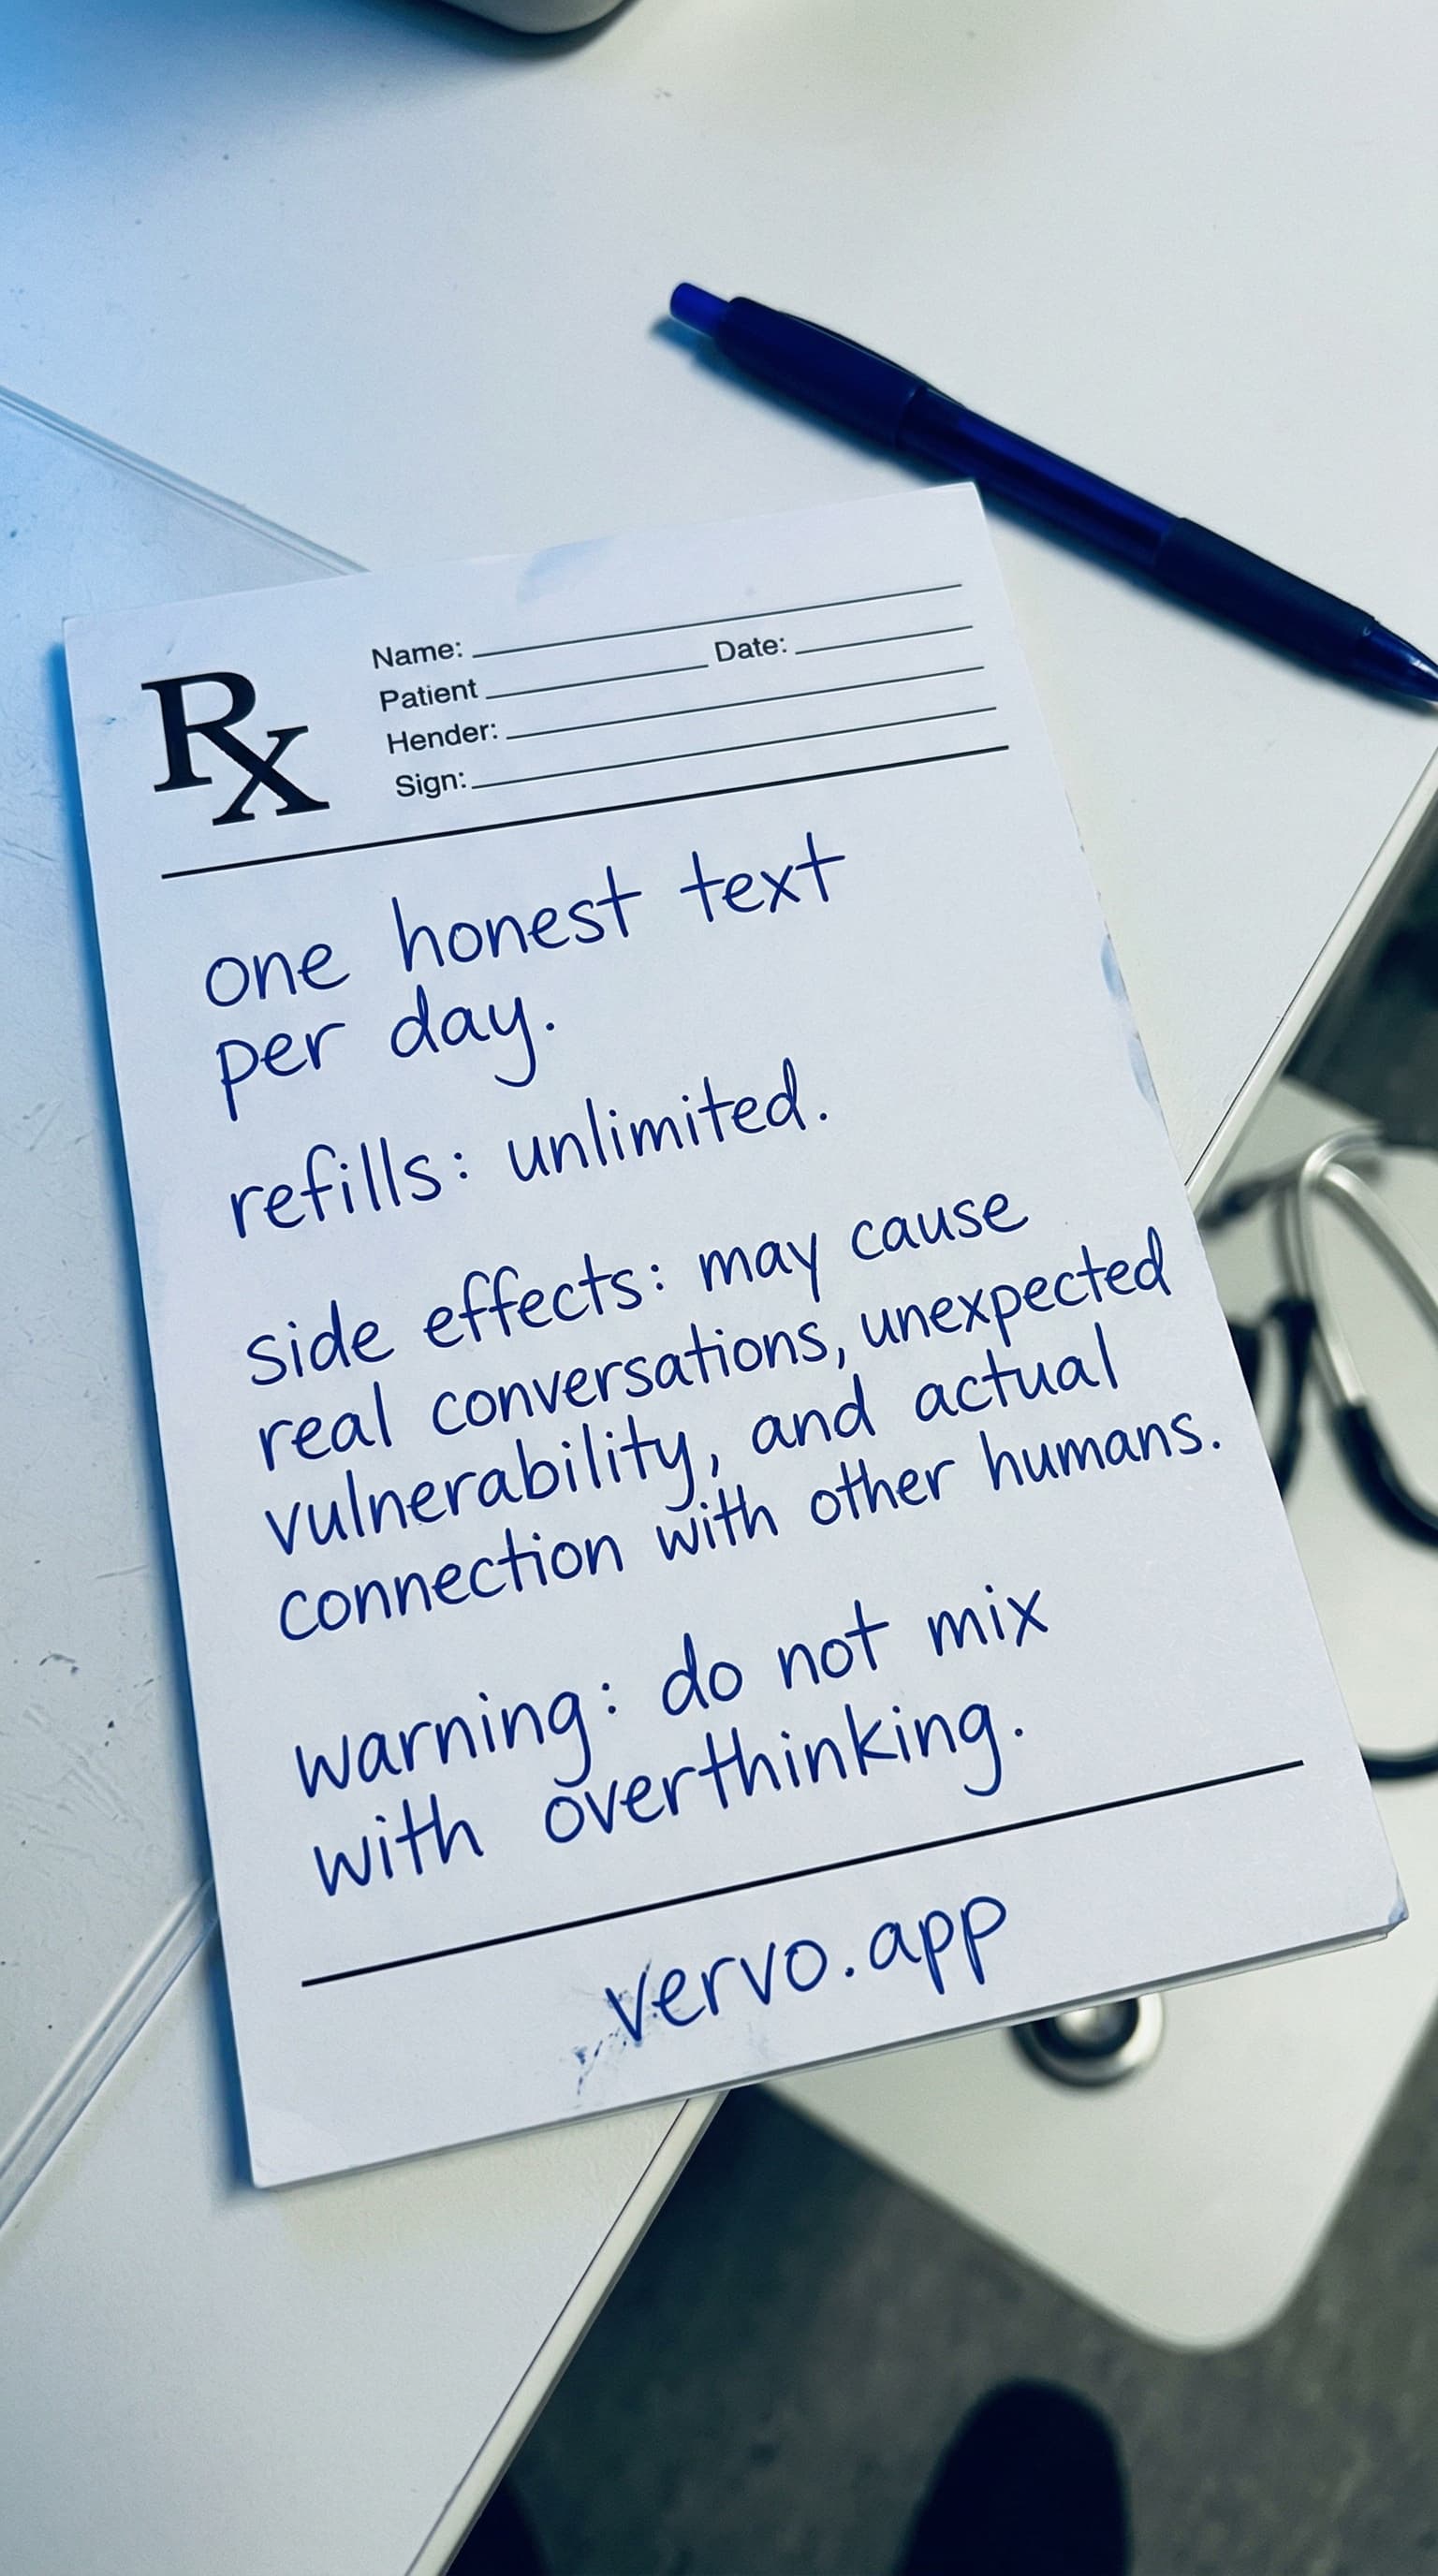 Rx
Name:
Patient Date:
Hender:
Sign:
one honest text
per day.
refills: unlimited.
side effects: may cause
real conversations, unexpected
vulnerability, and actual
connection with other humans.
warning: do not mix
with overthinking.
vervo.app